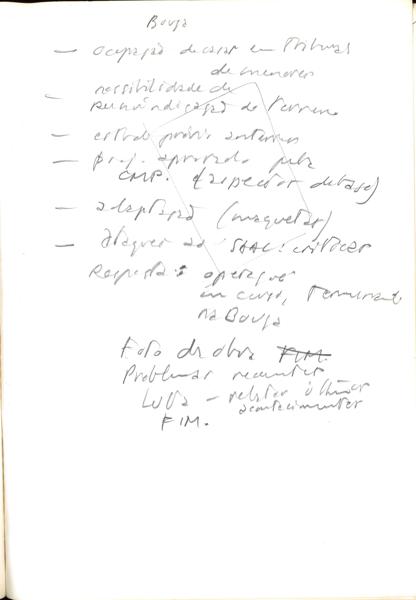 Bouça
— ocupação de casas em Tribunal
de menores
— possibilidade de
reivindicação de terreno
— estudo prévio anterior
— proj. aprovado pela
CMP. (aspectos debase)
— adaptação (maquetas)
— Ataques ao SAAL: críticas
Resposta: operações
em curso, terminando
na Bouça
Foto da obra FIM.
Problemas recentes
Luta — relatar últimos
acontecimentos
FIM.